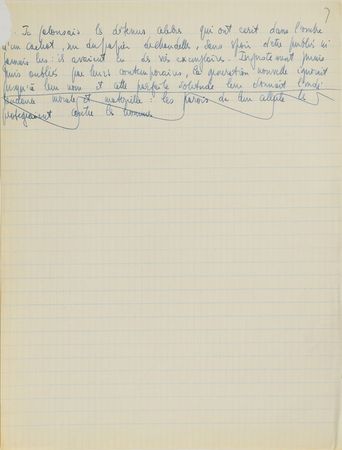 7
Je jalousais les détenus célèbres qui ont écrit dans l'ombre
d'un cachot, sur du papier de chandelle, sans espoir d'être publiés ni
jamais lus : ils avaient eu des vies exemplaires. Injustement punis
puis oubliés par leurs contemporains, la génération nouvelle ignorait
jusqu'à leur nom et cette parfaite solitude leur donnait l'indé-
pendance morale et matérielle : les parois de leur cellule les
protégeaient contre les hommes